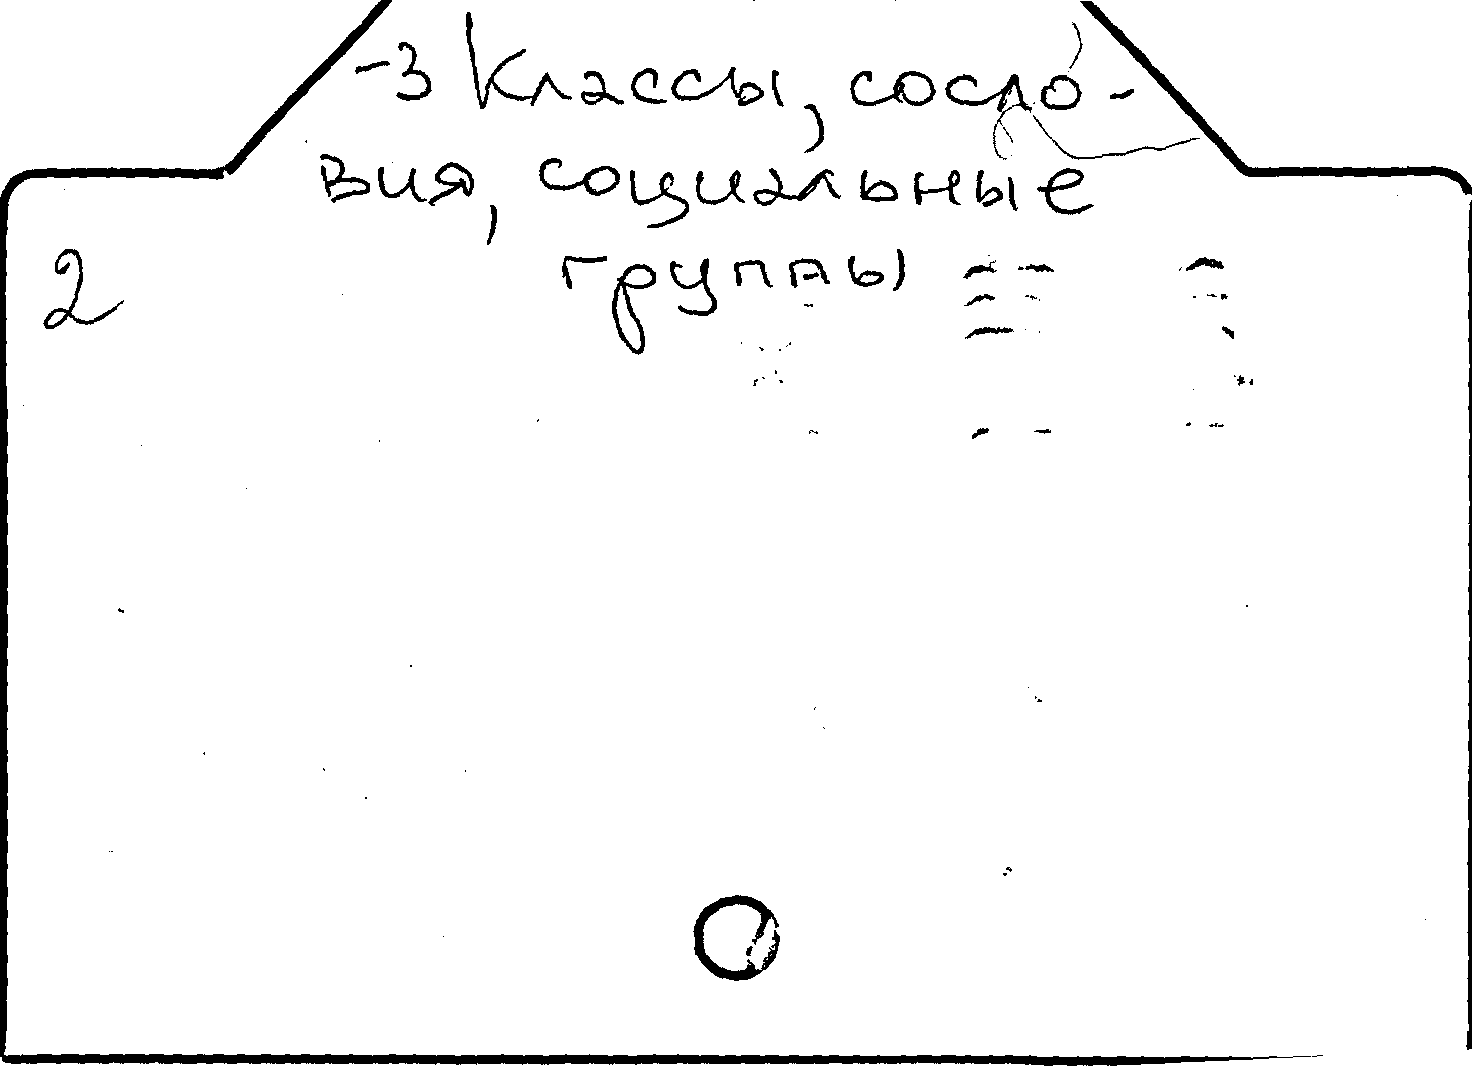 -3 Классы, сосло-
вия, социальные
группы
2